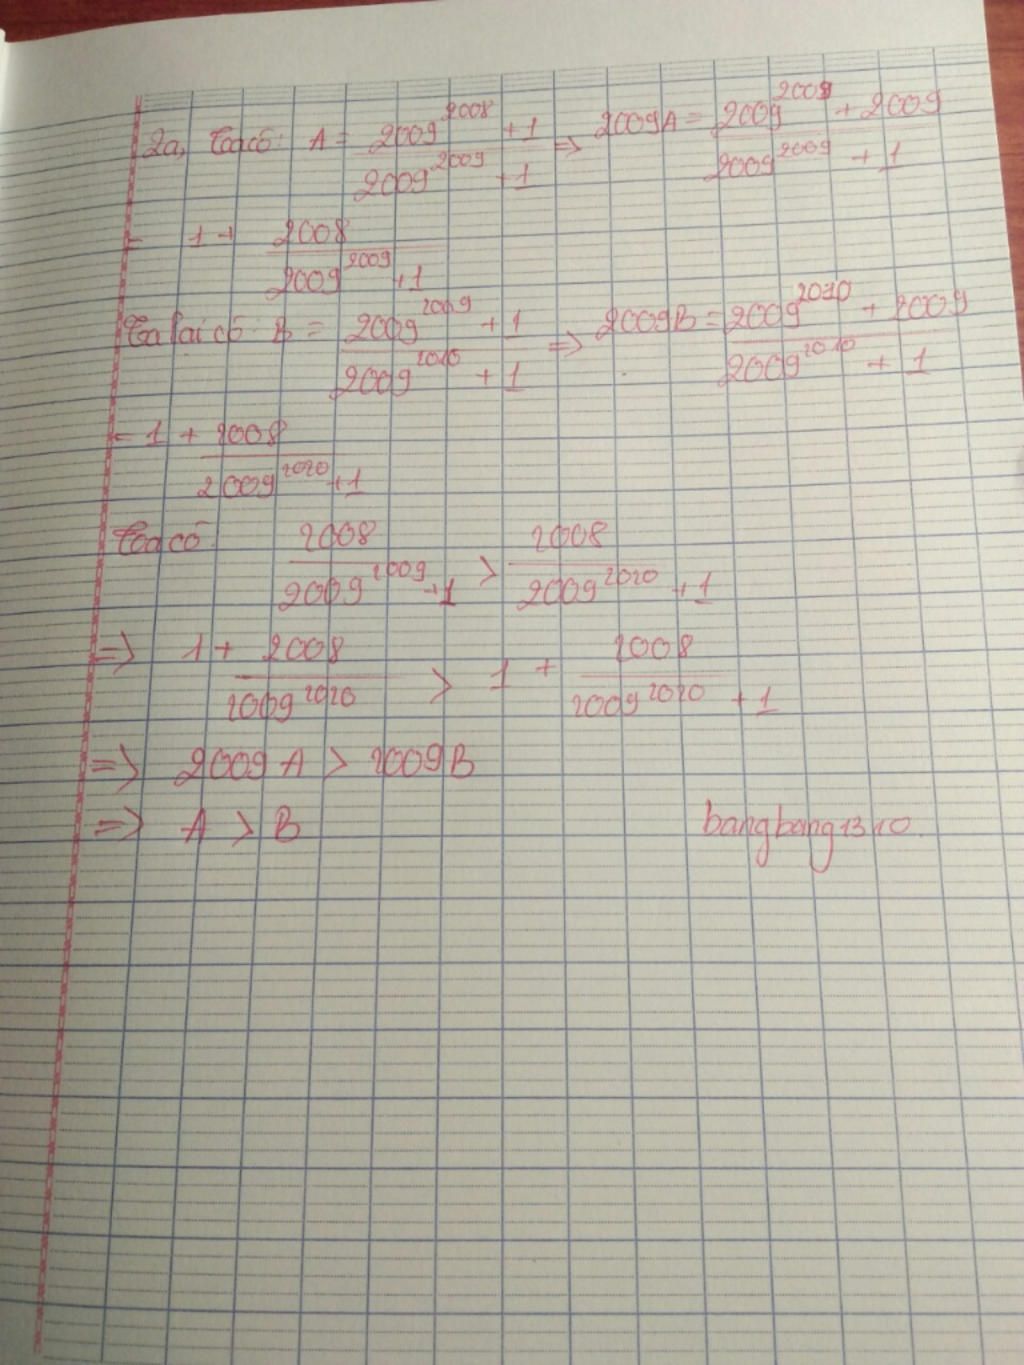 2a, Ta có: A = \frac{2009^{2008} + 1}{2009^{2009} + 1} => 2009A = \frac{2009^{2009} + 2009}{2009^{2009} + 1}
= 1 + \frac{2008}{2009^{2009} + 1}
Ta lại có B = \frac{2009^{2009} + 1}{2009^{2010} + 1} => 2009B = \frac{2009^{2010} + 2009}{2009^{2010} + 1}
= 1 + \frac{2008}{2009^{2010} + 1}
Ta có \frac{2008}{2009^{2009} + 1} > \frac{2008}{2009^{2010} + 1}
=> 1 + \frac{2008}{2009^{2010}} > 1 + \frac{2008}{2009^{2010} + 1}
=> 2009A > 2009B
=> A > B
bangbang1310